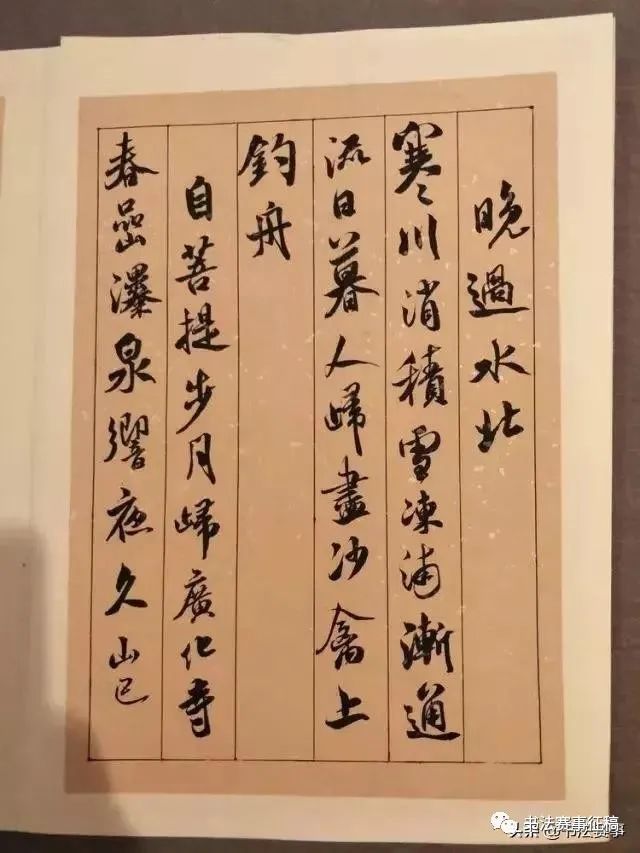 晚過水北
寒川消積雪凍浦漸通
流日暮人歸盡沙禽上
釣舟
自菩提步月歸廣化寺
春嵒瀑泉響夜久山已
书法赛事征稿
头条 @书法赛事